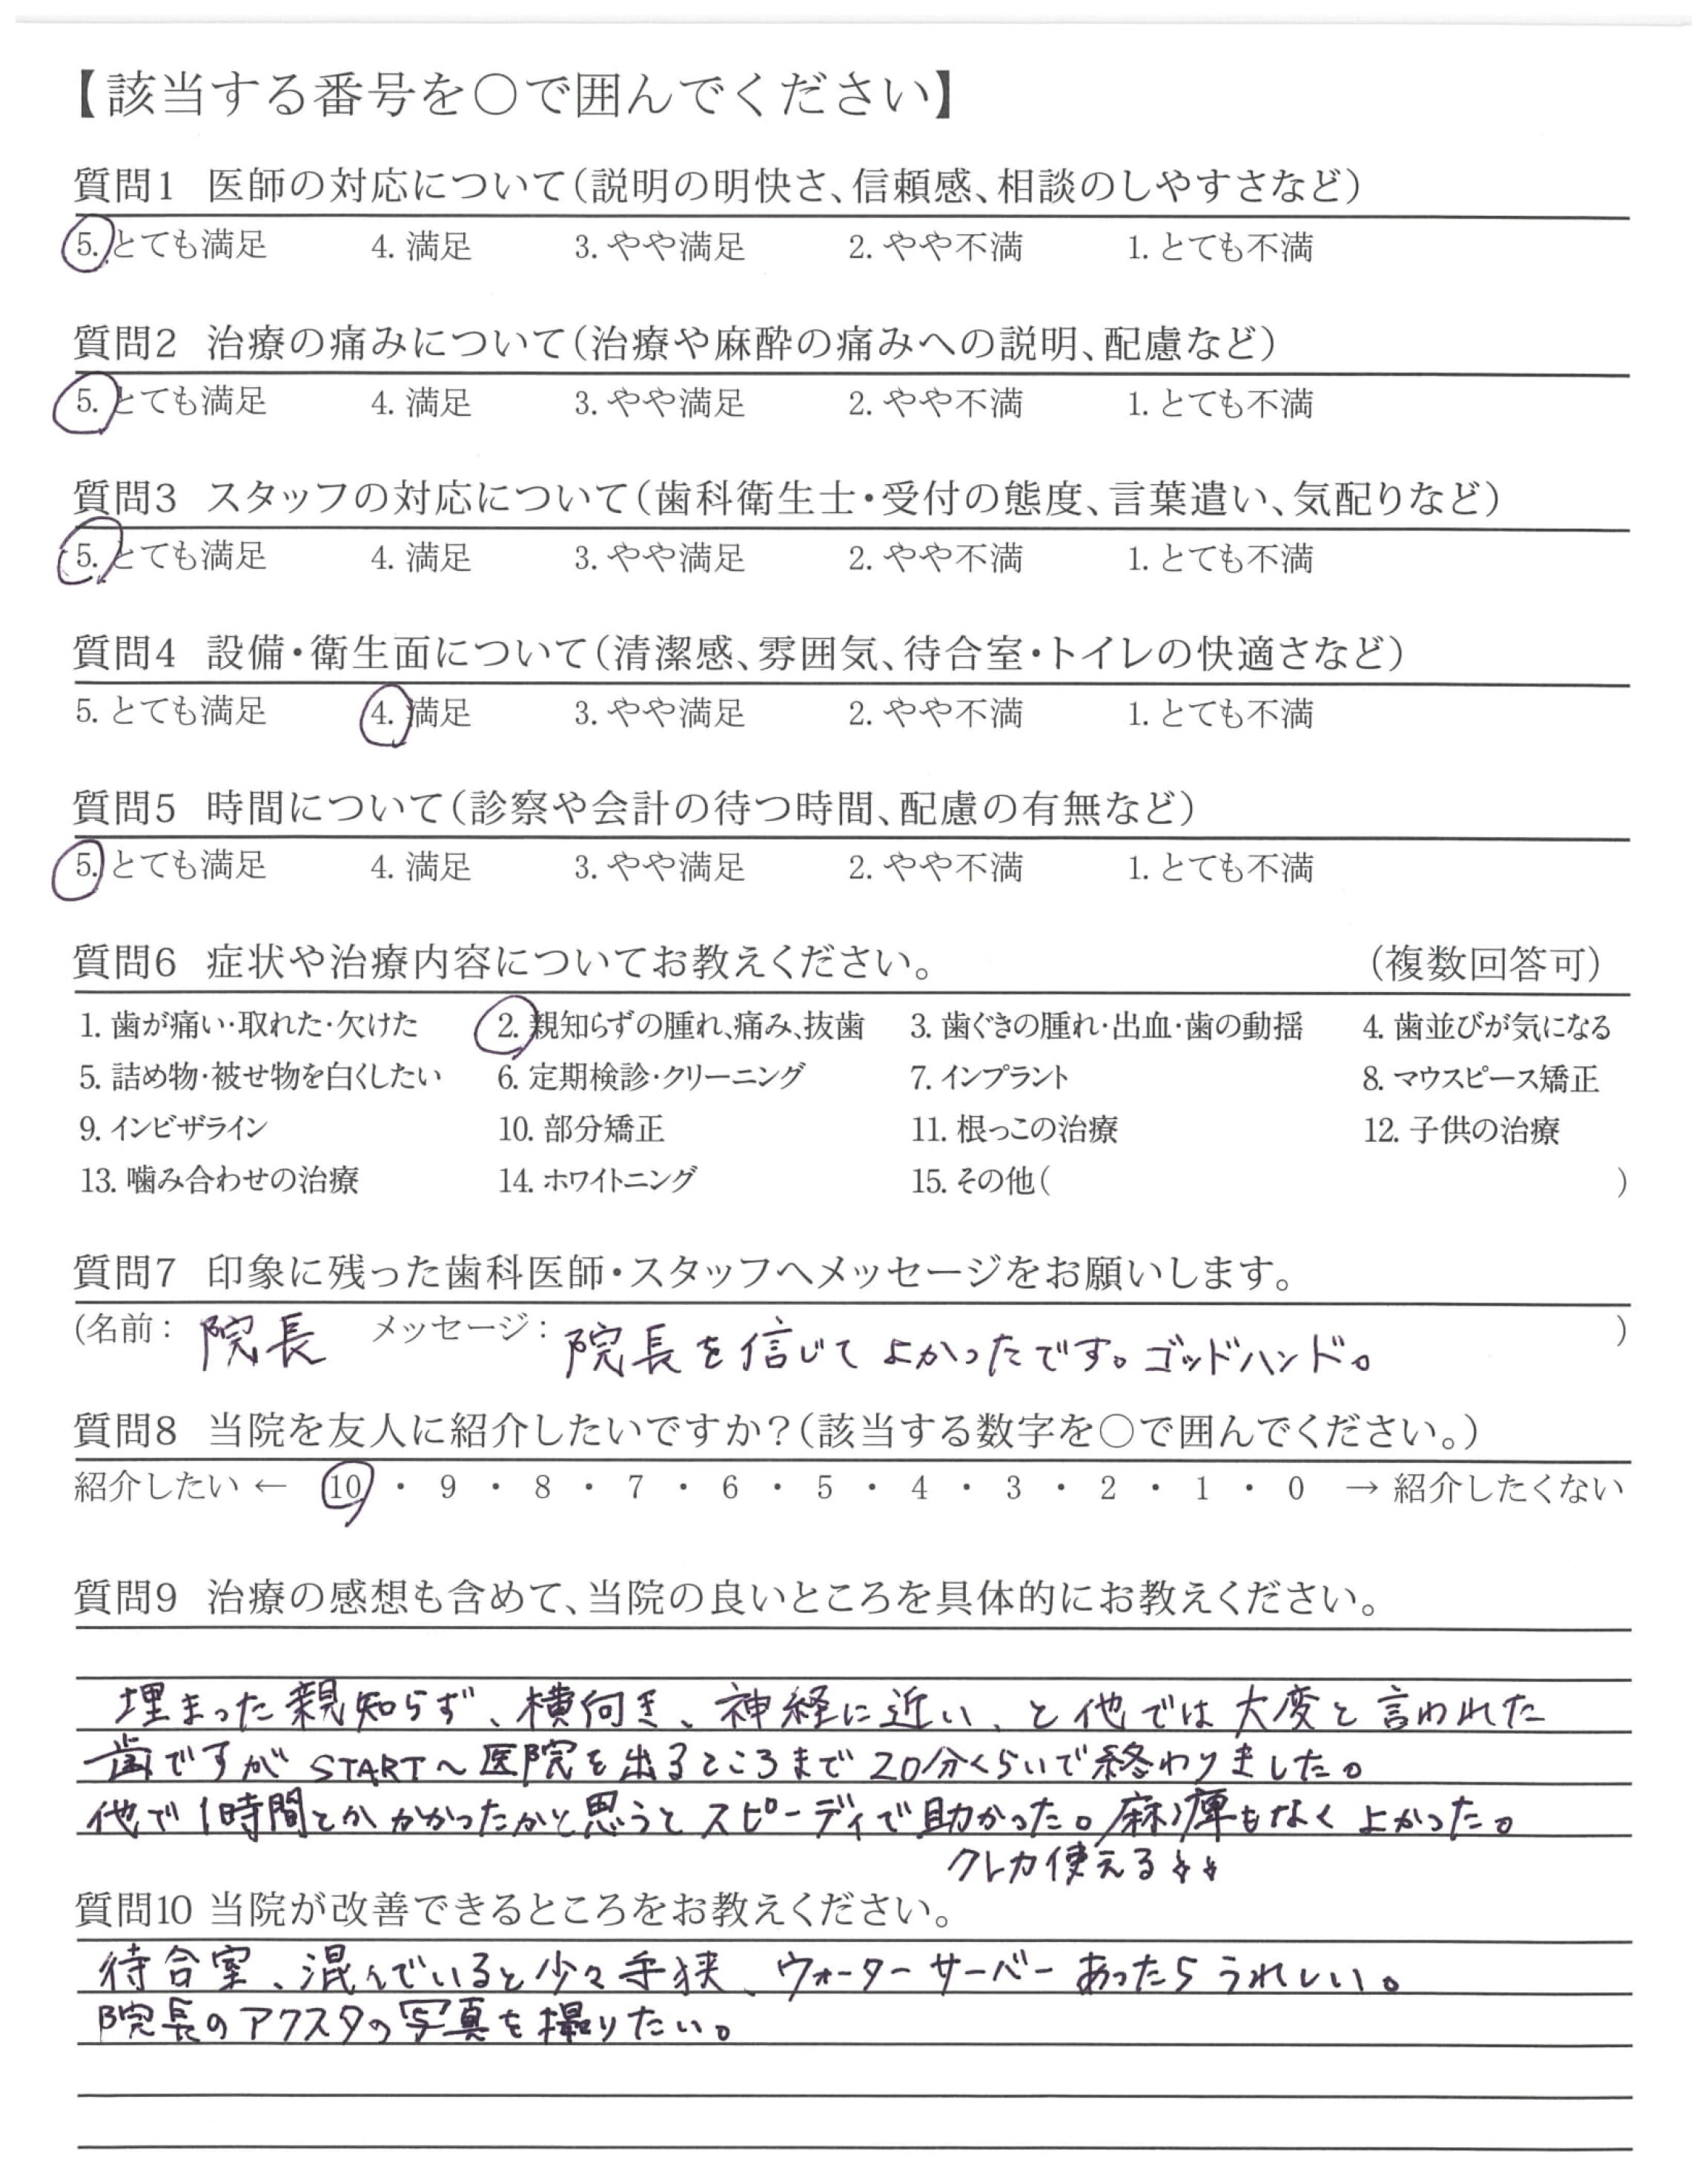 【該当する番号を○で囲んでください】
質問1 医師の対応について(説明の明快さ、信頼感、相談のしやすさなど)
5. とても満足 4. 満足 3. やや満足 2. やや不満 1. とても不満
質問2 治療の痛みについて(治療や麻酔の痛みへの説明、配慮など)
5. とても満足 4. 満足 3. やや満足 2. やや不満 1. とても不満
質問3 スタッフの対応について(歯科衛生士・受付の態度、言葉遣い、気配りなど)
5. とても満足 4. 満足 3. やや満足 2. やや不満 1. とても不満
質問4 設備・衛生面について(清潔感、雰囲気、待合室・トイレの快適さなど)
5. とても満足 4. 満足 3. やや満足 2. やや不満 1. とても不満
質問5 時間について(診察や会計の待つ時間、配慮の有無など)
5. とても満足 4. 満足 3. やや満足 2. やや不満 1. とても不満
質問6 症状や治療内容についてお教えください。 (複数回答可)
1. 歯が痛い・取れた・欠けた 2. 親知らずの腫れ、痛み、抜歯 3. 歯ぐきの腫れ・出血・歯の動揺 4. 歯並びが気になる
5. 詰め物・被せ物を白くしたい 6. 定期検診・クリーニング 7. インプラント 8. マウスピース矯正
9. インビザライン 10. 部分矯正 11. 根っこの治療 12. 子供の治療
13. 噛み合わせの治療 14. ホワイトニング 15. その他( )
質問7 印象に残った歯科医師・スタッフへメッセージをお願いします。
(名前: 院長 メッセージ: 院長を信じてよかったです。ゴッドハンド。 )
質問8 当院を友人に紹介したいですか?(該当する数字を○で囲んでください。)
紹介したい ← 10 ・ 9 ・ 8 ・ 7 ・ 6 ・ 5 ・ 4 ・ 3 ・ 2 ・ 1 ・ 0 → 紹介したくない
質問9 治療の感想も含めて、当院の良いところを具体的にお教えください。
埋まった親知らず、横向き、神経に近い、と他では大変と言われた
歯ですがSTART〜医院を出るところまで20分くらいで終わりました。
他で1時間とかかかったかと思うとスピーディで助かった。麻痺もなくよかった。
クレカ使える
質問10 当院が改善できるところをお教えください。
待合室、混んでいると少々手狭、ウォーターサーバーあったらうれしい。
院長のアクスタの写真を撮りたい。